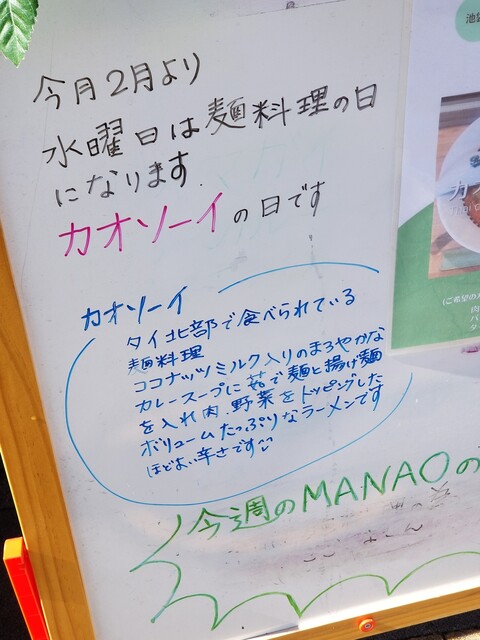 今月2月より
水曜日は麺料理の日
になります
カオソーイの日です
カオソーイ
タイ北部で食べられている
麺料理
ココナッツミルク入りのまろやかな
カレースープに茹で麺と揚げ麺
を入れ肉、野菜をトッピングした
ボリュームたっぷりなラーメンです
ほどよい辛さです
今週のMANAOの
池袋
カ
(ご希望の